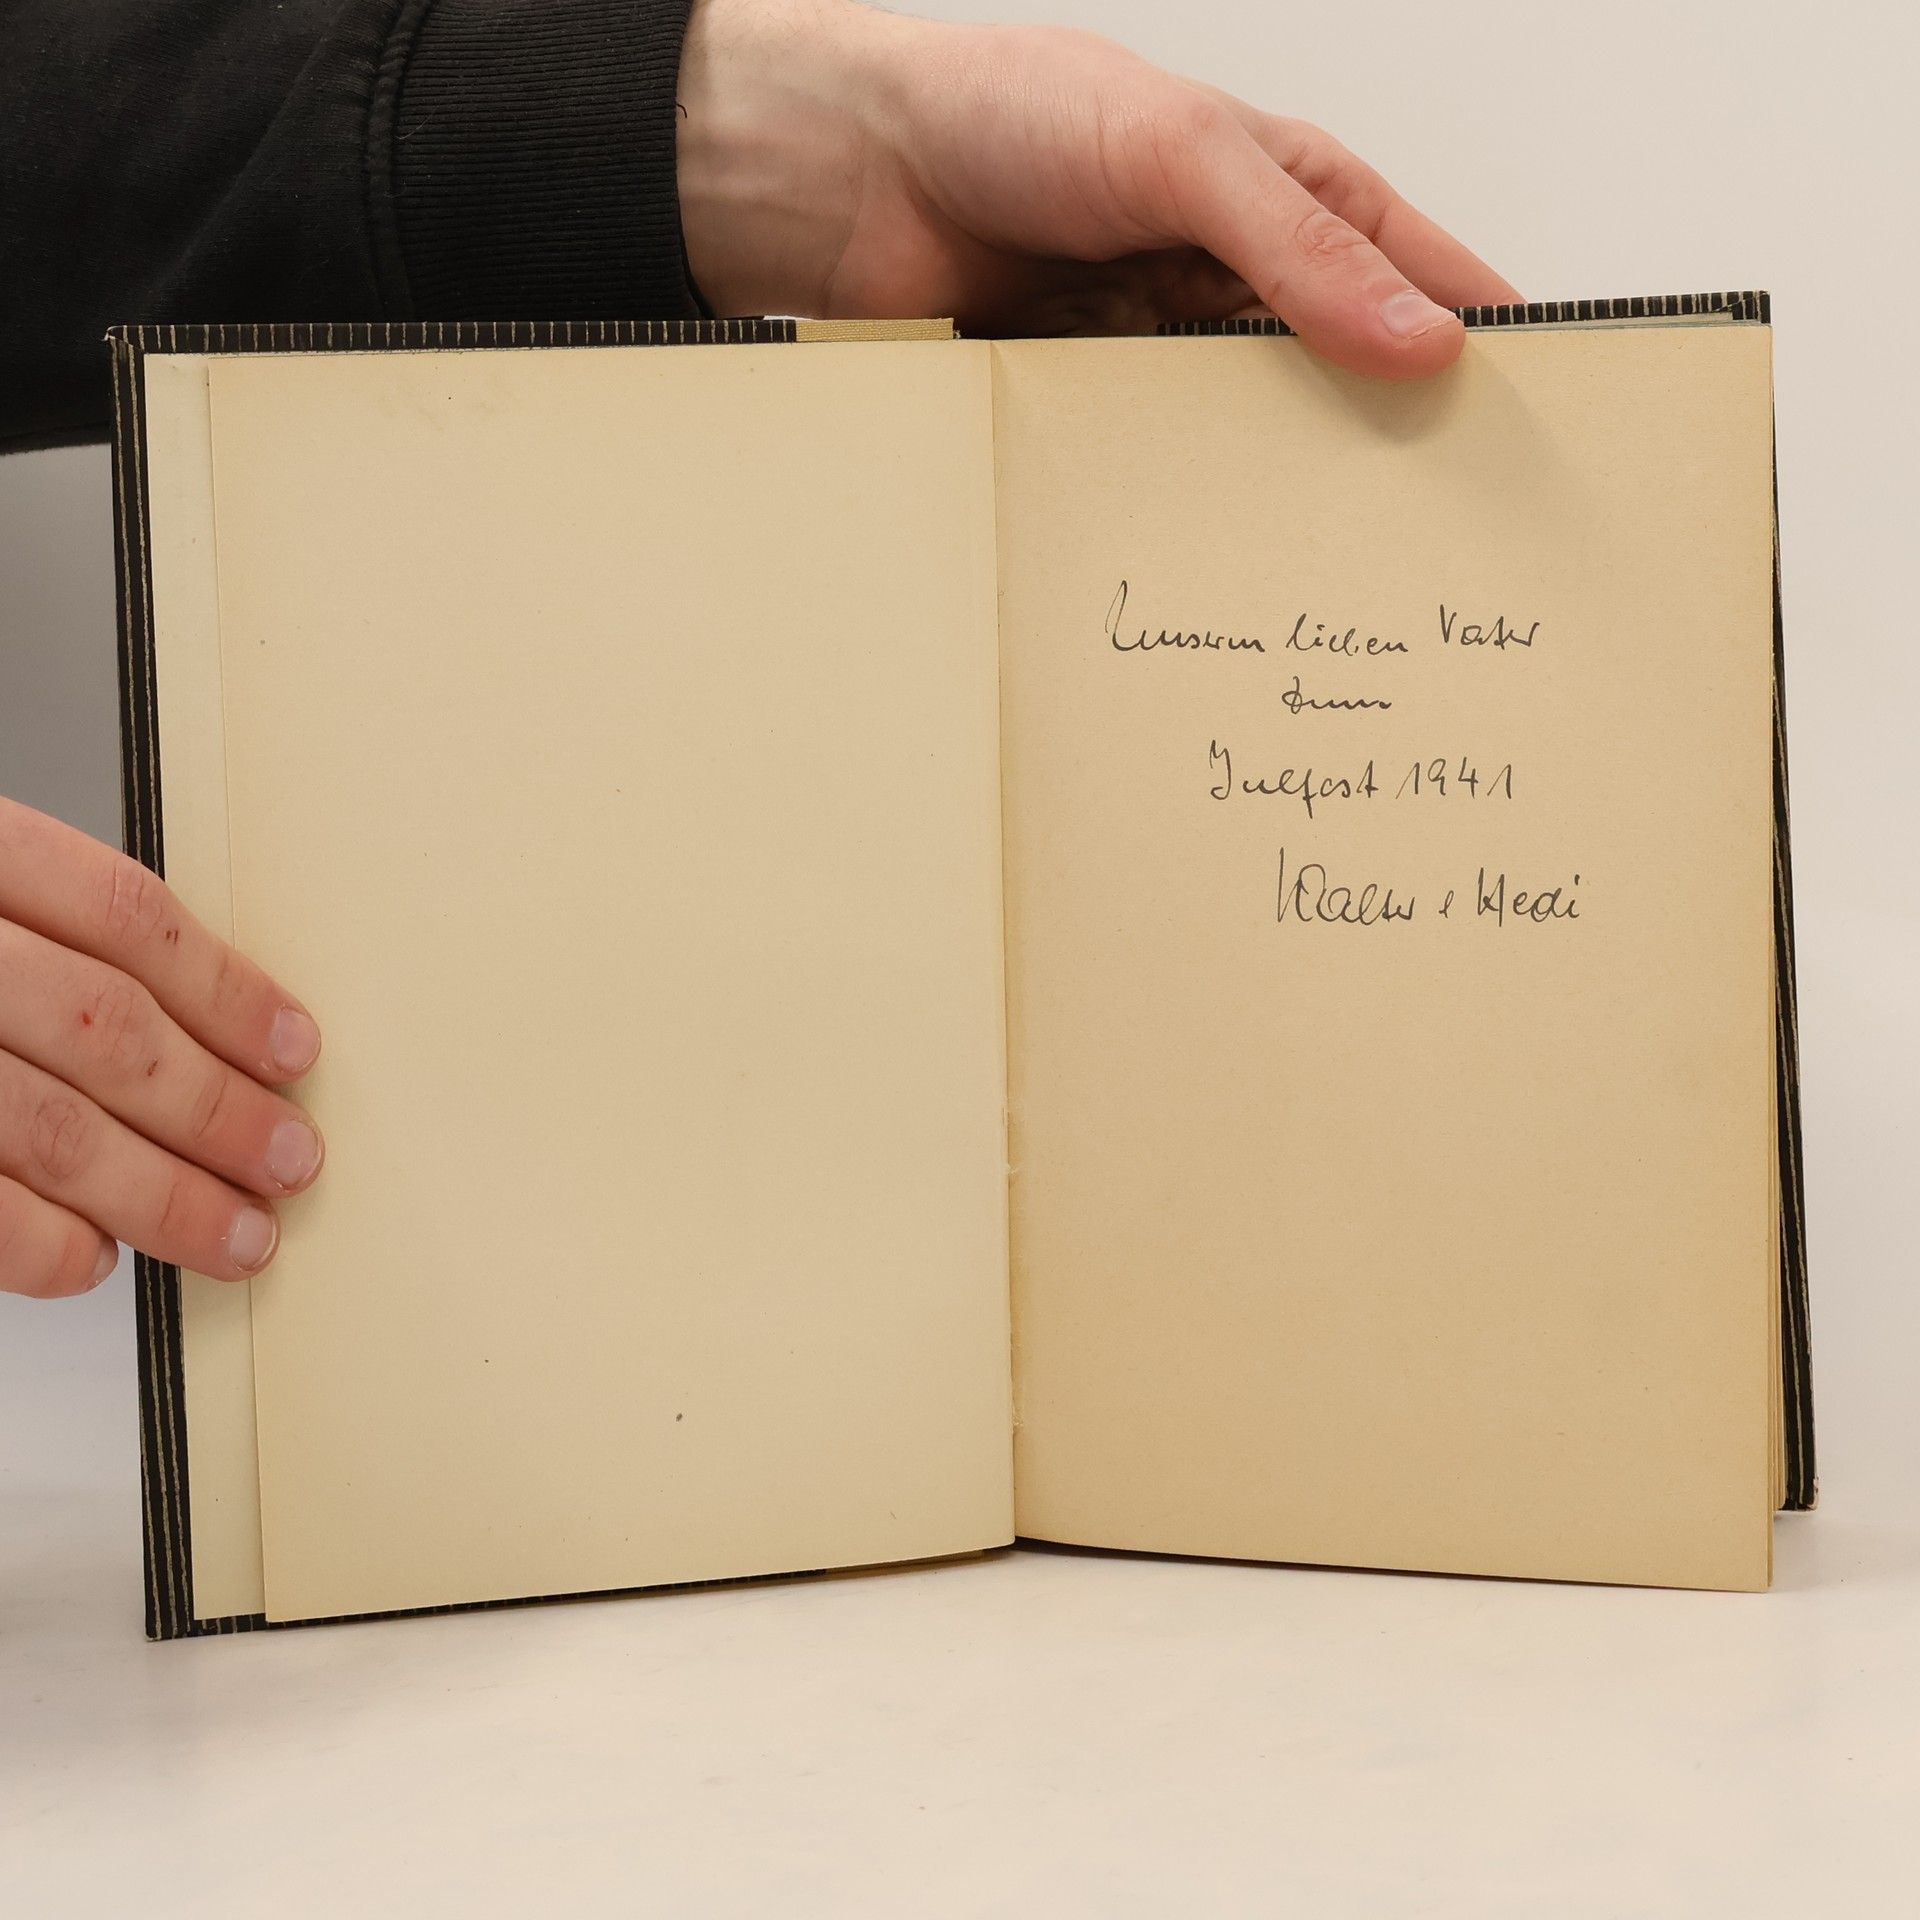 Unserm lieben Vater
zum
Julfest 1941
Walter e Hedi